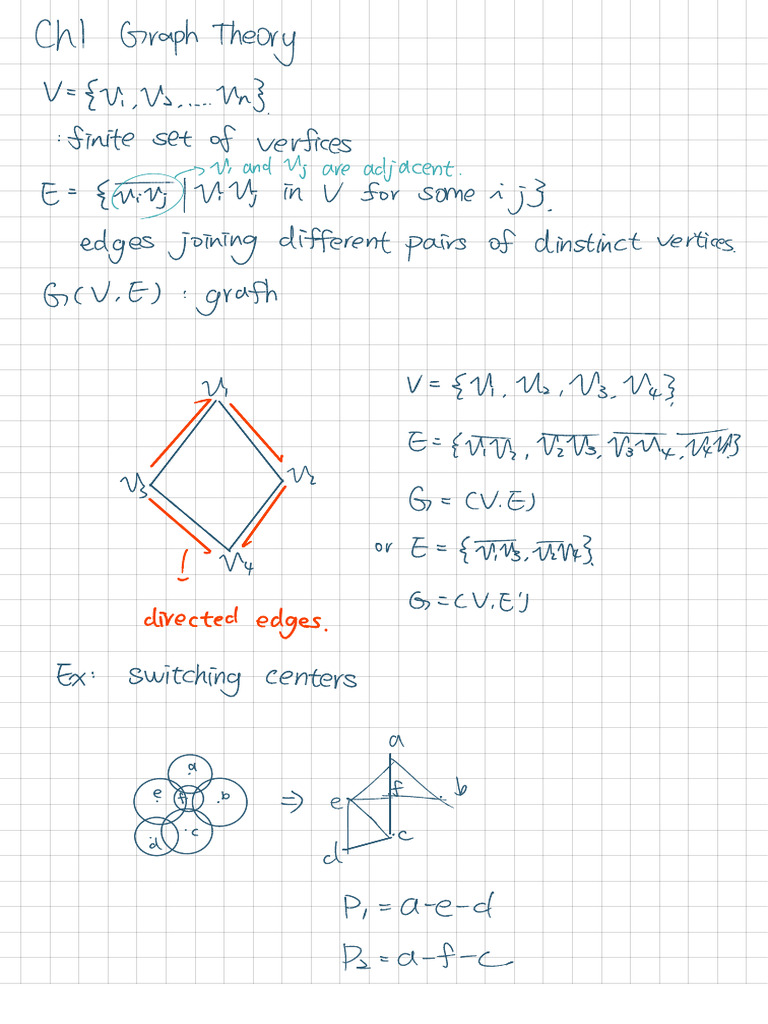 Ch1 Graph Theory
V = {v₁, v₂, .... vₙ}.
: finite set of verfices
vᵢ and vⱼ are adjacent.
E = {v̅ᵢv̅ⱼ | vᵢ vⱼ in V for some i j}.
edges joining different pairs of dinstinct vertices.
G(V, E) : grafh
v₁
v₃
v₂
v₄
directed edges.
V = {v₁, v₂, v₃, v₄}
E = {v̅₁v̅₂, v̅₂v̅₃, v̅₃v̅₄, v̅₄v̅₁}
G = (V, E)
or E = {v̅₁v̅₃, v̅₂v̅₄}
G = (V, E')
Ex: switching centers
a
e f b
d c
⇒
a
e f b
c
d
P₁ = a-e-d
P₂ = a-f-c